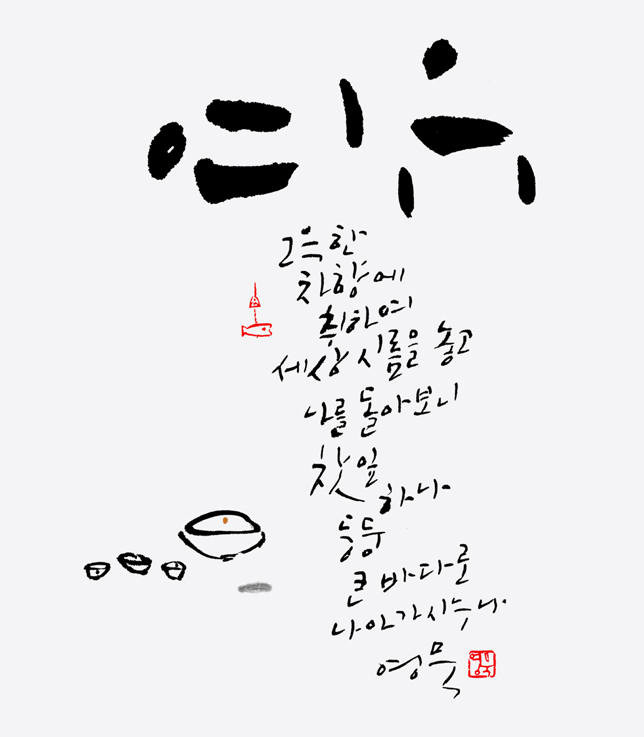 여유
그윽한
차향에
취하여
세상 시름을 놓고
나를 돌아보니
찻잎
하나
둥둥
큰 바다로
나아가시누나
영묵